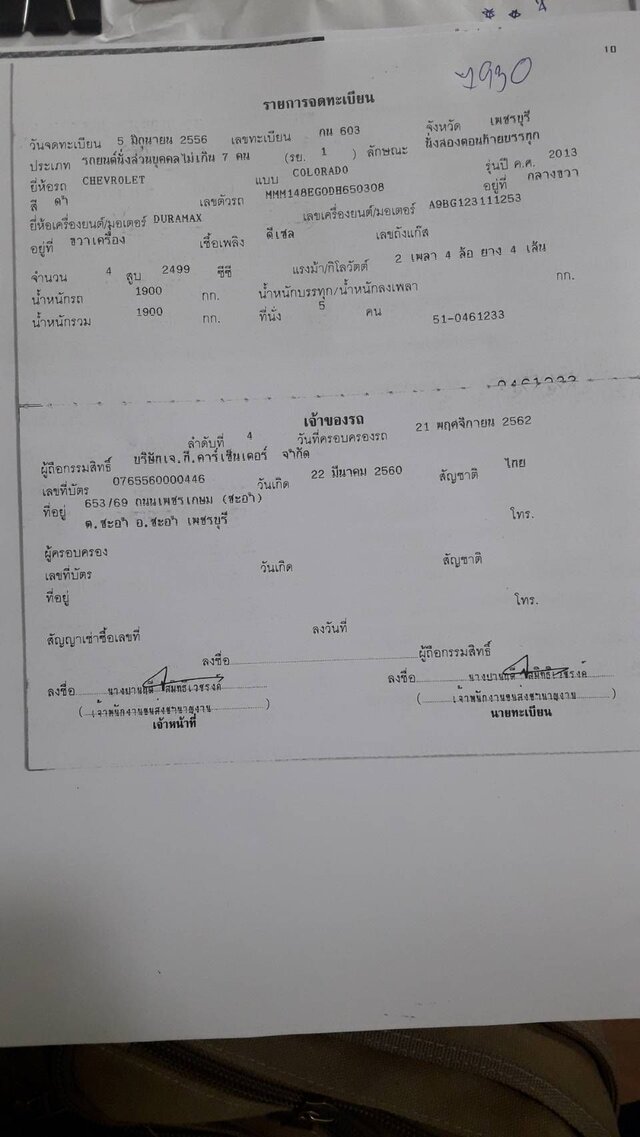 10
7930
รายการจดทะเบียน
วันจดทะเบียน 5 มิถุนายน 2556 เลขทะเบียน กน 603 จังหวัด เพชรบุรี
ประเภท รถยนต์นั่งส่วนบุคคลไม่เกิน 7 คน (รย. 1 ) ลักษณะ นั่งสองตอนท้ายบรรทุก
ยี่ห้อรถ CHEVROLET แบบ COLORADO รุ่นปี ค.ศ. 2013
สี ดำ เลขตัวรถ MMM148EG0DH650308 อยู่ที่ กลางขวา
ยี่ห้อเครื่องยนต์/มอเตอร์ DURAMAX เลขเครื่องยนต์/มอเตอร์ A9BG123111253
อยู่ที่ ขวาเครื่อง เชื้อเพลิง ดีเซล เลขถังแก๊ส
จำนวน 4 สูบ 2499 ซีซี แรงม้า/กิโลวัตต์ 2 เพลา 4 ล้อ ยาง 4 เส้น
น้ำหนักรถ 1900 กก. น้ำหนักบรรทุก/น้ำหนักลงเพลา กก.
น้ำหนักรวม 1900 กก. ที่นั่ง 5 คน 51-0461233
0461233
เจ้าของรถ
ลำดับที่ 4 วันที่ครอบครองรถ 21 พฤศจิกายน 2562
ผู้ถือกรรมสิทธิ์ บริษัทเจ.ที.คาร์เซ็นเตอร์ จำกัด
เลขที่บัตร 0765560000446 วันเกิด 22 มีนาคม 2560 สัญชาติ ไทย
ที่อยู่ 653/69 ถนนเพชรเกษม (ชะอำ)
ต.ชะอำ อ.ชะอำ เพชรบุรี โทร.
ผู้ครอบครอง
เลขที่บัตร วันเกิด สัญชาติ
ที่อยู่ โทร.
สัญญาเช่าซื้อเลขที่ ลงวันที่
ลงชื่อ ผู้ถือกรรมสิทธิ์
ลงชื่อ ลงชื่อ
(เจ้าพนักงานขนส่งชำนาญงาน) (เจ้าพนักงานขนส่งชำนาญงาน)
เจ้าหน้าที่ นายทะเบียน